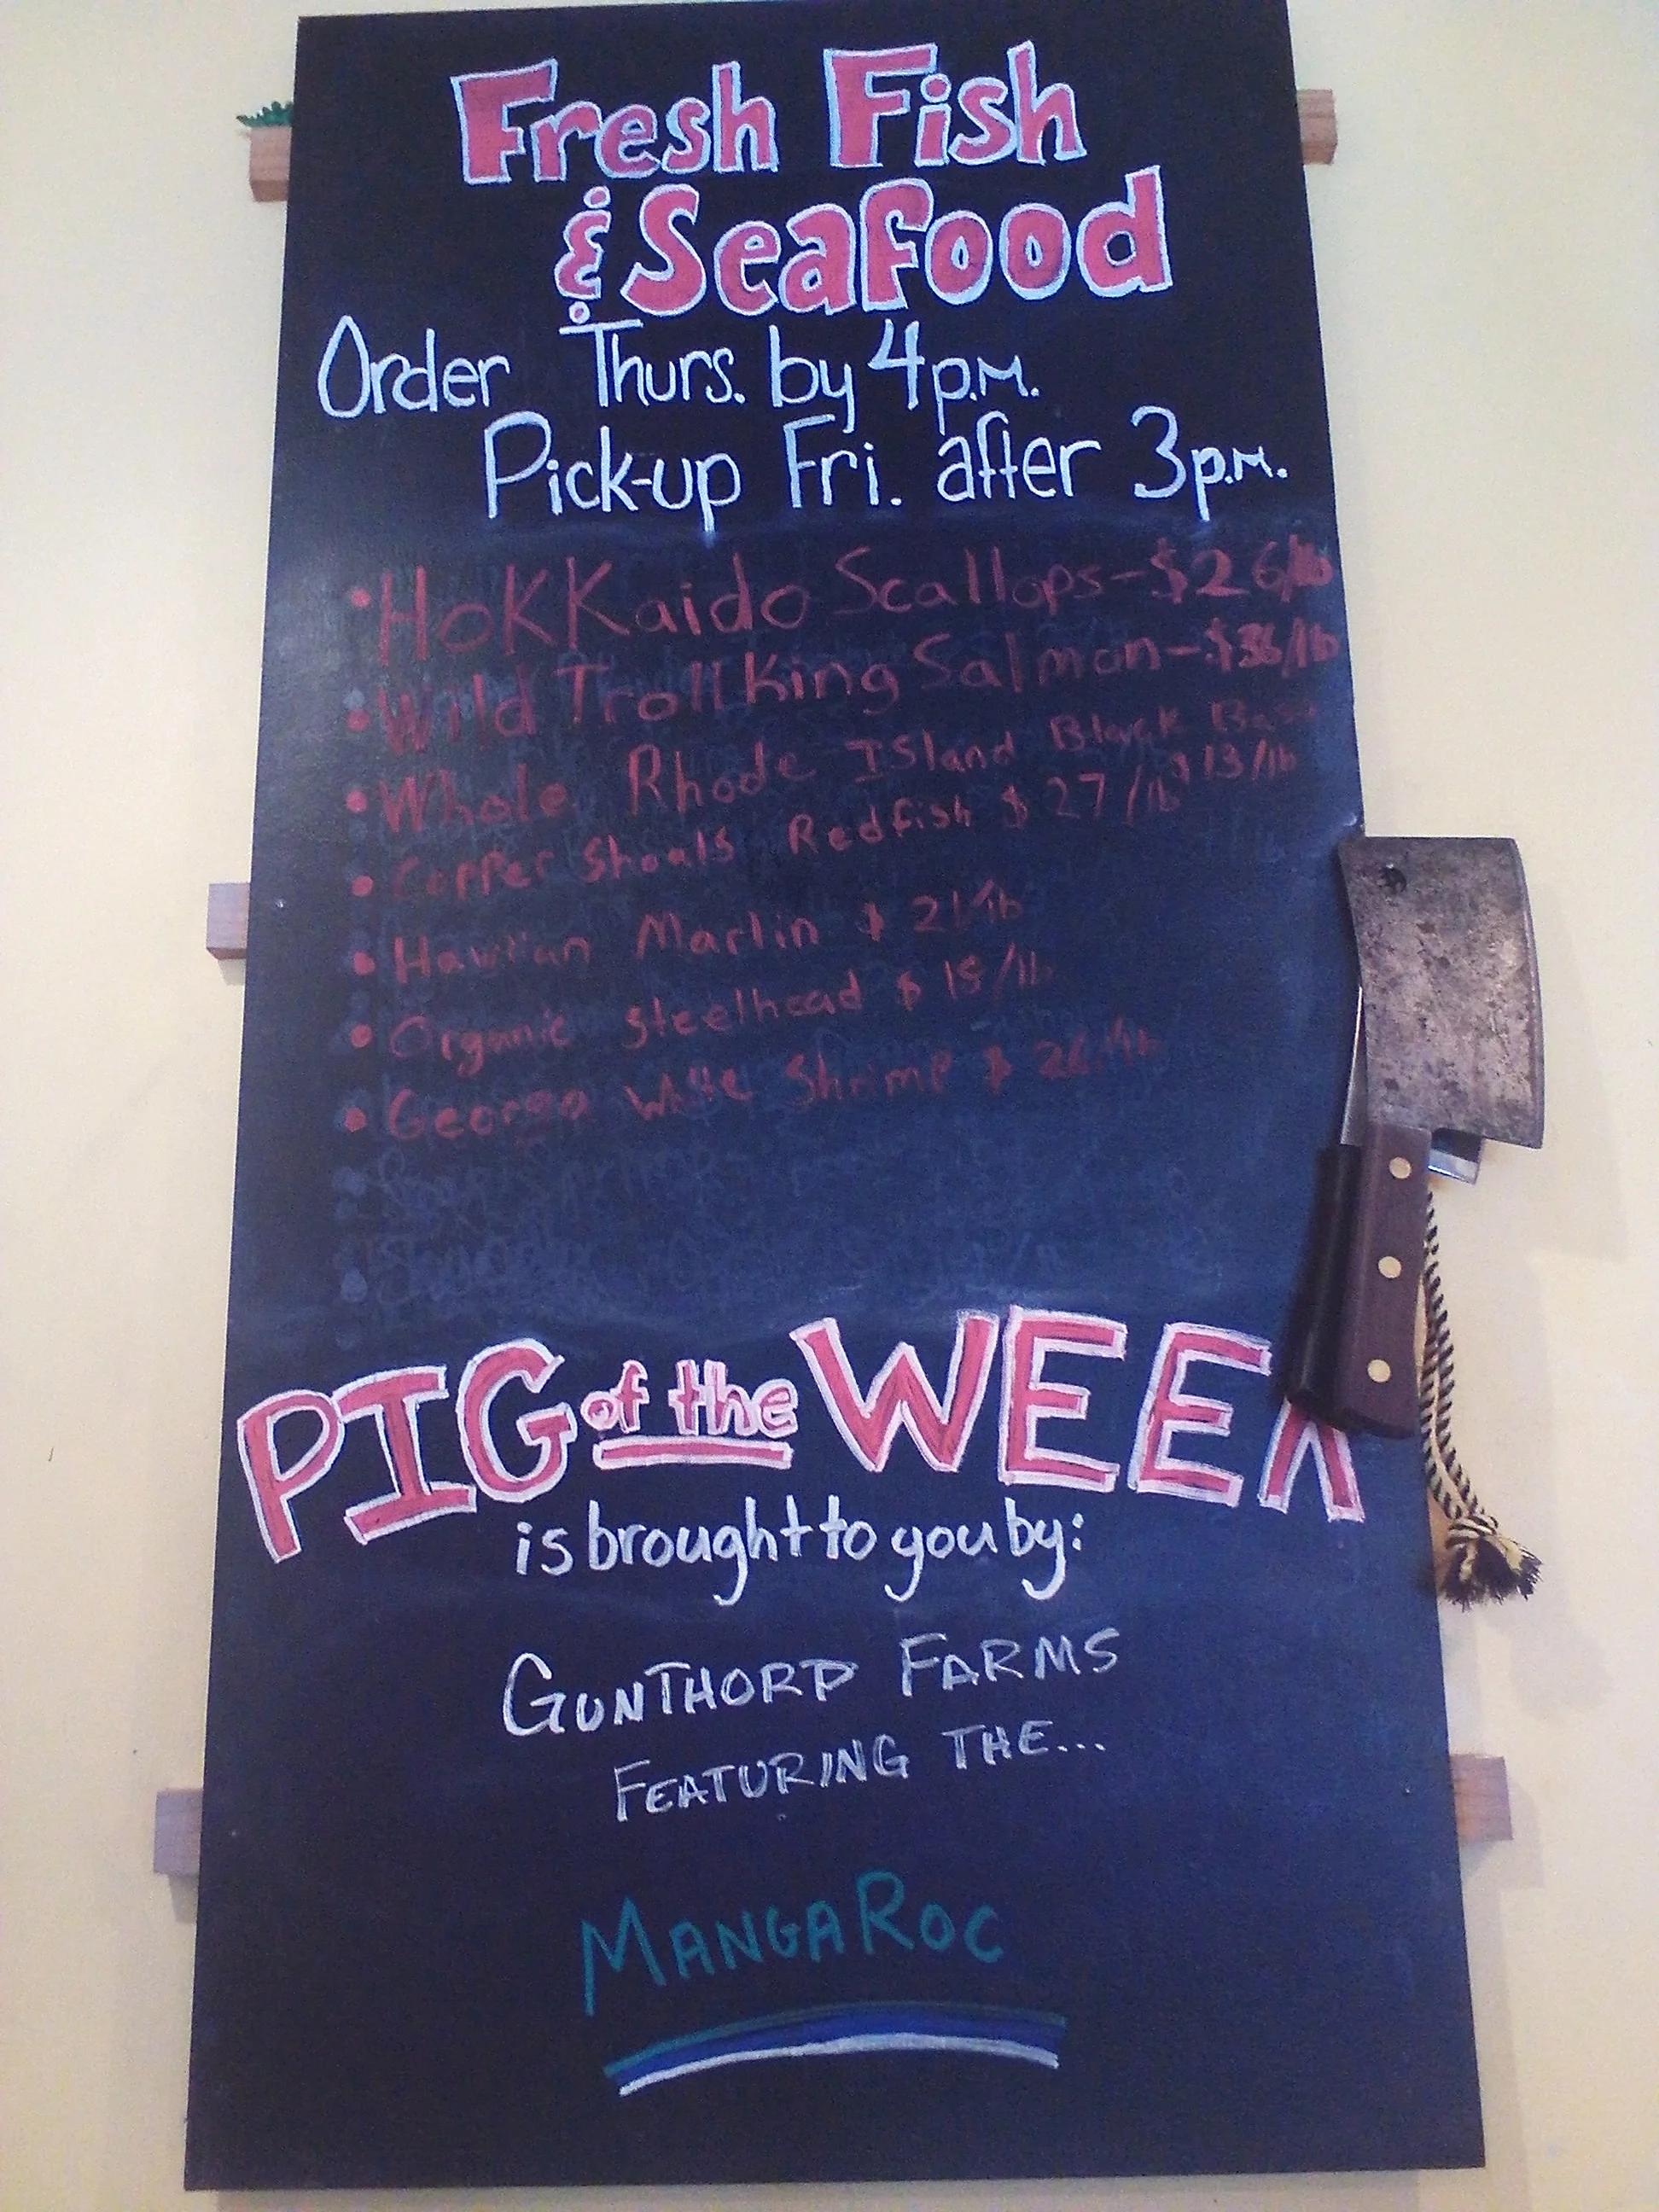 Fresh Fish
& Seafood
Order Thurs. by 4 p.m.
Pick-up Fri. after 3 p.m.
• Hokkaido Scallops - $26/lb
• Wild Troll King Salmon - $36/lb
• Whole Rhode Island Black Bass
$13/lb
• Copper Shoals Redfish $27/lb
• Hawiian Marlin $21/lb
• Organic Steelhead $18/lb
• Georga White Shrimp $26/lb
PIG of the WEEK
is brought to you by:
GUNTHORP FARMS
FEATURING THE...
MANGAROC